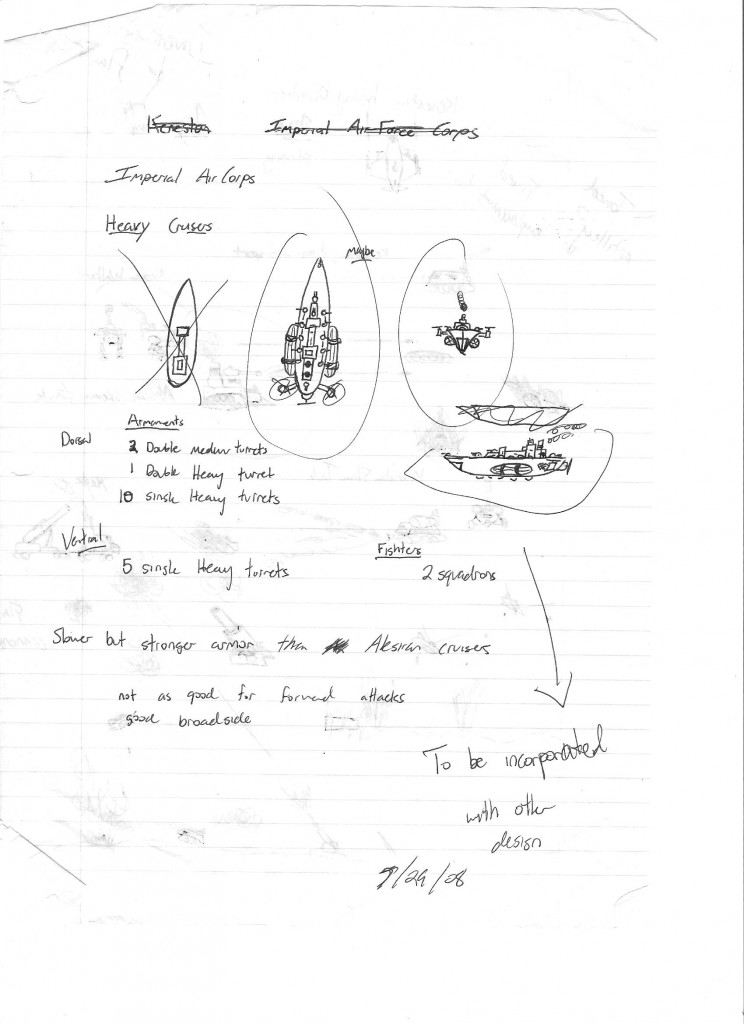 Kereston Imperial Air Force Corps
Imperial Air Corps
Heavy Crusers
Maybe
Armaments
Dorsal
2 Double medium turrets
1 Double Heavy turret
10 single Heavy turrets
Ventral
5 single Heavy turrets
Fighters
2 squadrons
Slower but stronger armor than Alesiran cruisers
not as good for forward attacks
good broadside
To be incorporated
with other
design
/29/28